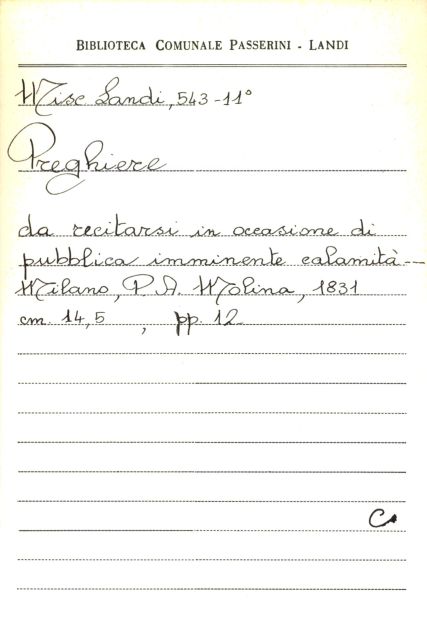 BIBLIOTECA COMUNALE PASSERINI - LANDI
Misc Landi, 543-11°
Preghiere
da recitarsi in occasione di
pubblica imminente calamità --
Milano, P. A. Molina, 1831
cm. 14,5 , pp. 12
C.